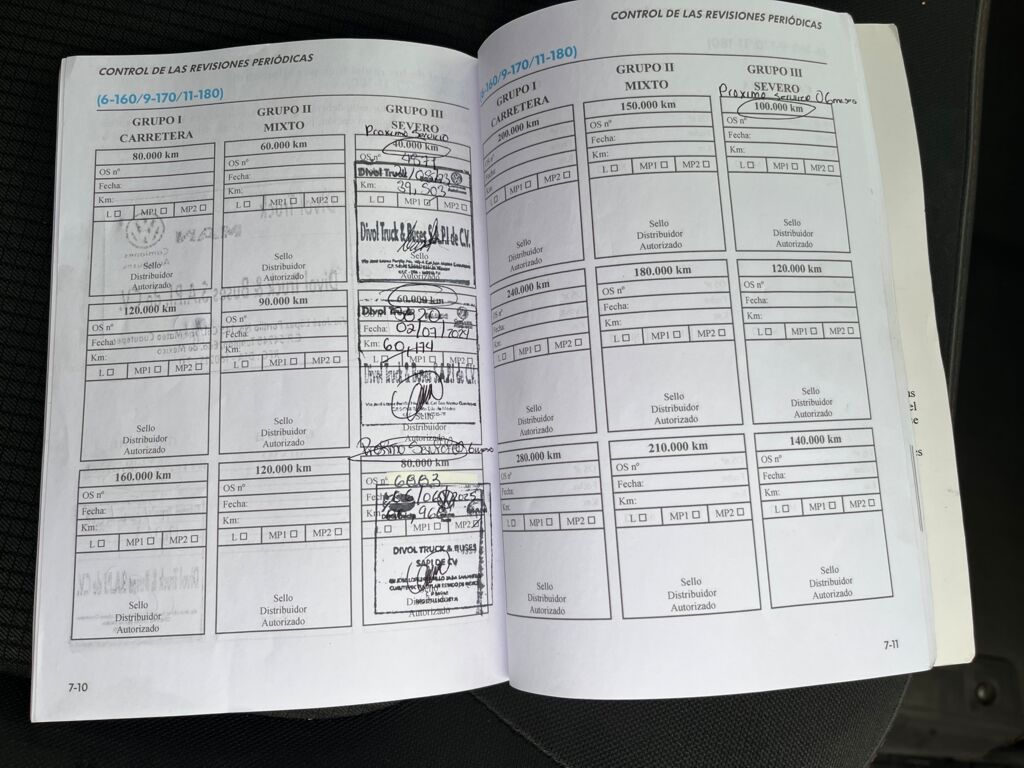 CONTROL DE LAS REVISIONES PERIÓDICAS
(6-160/9-170/11-180)
GRUPO I
CARRETERA
80.000 km
OS nº
Fecha:
Km:
L MP1 MP2
Sello
Distribuidor
Autorizado
120.000 km
OS nº
Fecha:
Km:
L MP1 MP2
Sello
Distribuidor
Autorizado
160.000 km
OS nº
Fecha:
Km:
L MP1 MP2
Sello
Distribuidor
Autorizado
GRUPO II
MIXTO
60.000 km
OS nº
Fecha:
Km:
L MP1 MP2
Sello
Distribuidor
Autorizado
90.000 km
OS nº
Fecha:
Km:
L MP1 MP2
Sello
Distribuidor
Autorizado
120.000 km
OS nº
Fecha:
Km:
L MP1 MP2
Sello
Distribuidor
Autorizado
GRUPO III
SEVERO
Proximo Servicio
40.000 km
OS nº
Divol Truck
Km: 39,503
L MP1 MP2
Divol Truck & Buses S.A.P.I de C.V.
Autorizado
60.000 km
Divol Truck
Fecha: 02/07/2024
Km: 60,474
L MP1 MP2
Divol Truck & Buses S.A.P.I de C.V.
Sello
Distribuidor
Autorizado
Proximo Servicio 06
80.000 km
OS nº 6883
L MP1 MP2
DIVOL TRUCK & BUSES
SAPI DE CV
Autorizado
7-10
CONTROL DE LAS REVISIONES PERIÓDICAS
6-160/9-170/11-180)
GRUPO I
CARRETERA
200.000 km
OS nº
Fecha:
Km:
L MP1 MP2
Sello
Distribuidor
Autorizado
240.000 km
OS nº
Fecha:
Km:
L MP1 MP2
Sello
Distribuidor
Autorizado
280.000 km
OS nº
Fecha:
Km:
L MP1 MP2
Sello
Distribuidor
Autorizado
GRUPO II
MIXTO
150.000 km
OS nº
Fecha:
Km:
L MP1 MP2
Sello
Distribuidor
Autorizado
180.000 km
OS nº
Fecha:
Km:
L MP1 MP2
Sello
Distribuidor
Autorizado
210.000 km
OS nº
Fecha:
Km:
L MP1 MP2
Sello
Distribuidor
Autorizado
GRUPO III
SEVERO
Proximo Servicio 06 meses
100.000 km
OS nº
Fecha:
Km:
L MP1 MP2
Sello
Distribuidor
Autorizado
120.000 km
OS nº
Fecha:
Km:
L MP1 MP2
Sello
Distribuidor
Autorizado
140.000 km
OS nº
Fecha:
Km:
L MP1 MP2
Sello
Distribuidor
Autorizado
7-11